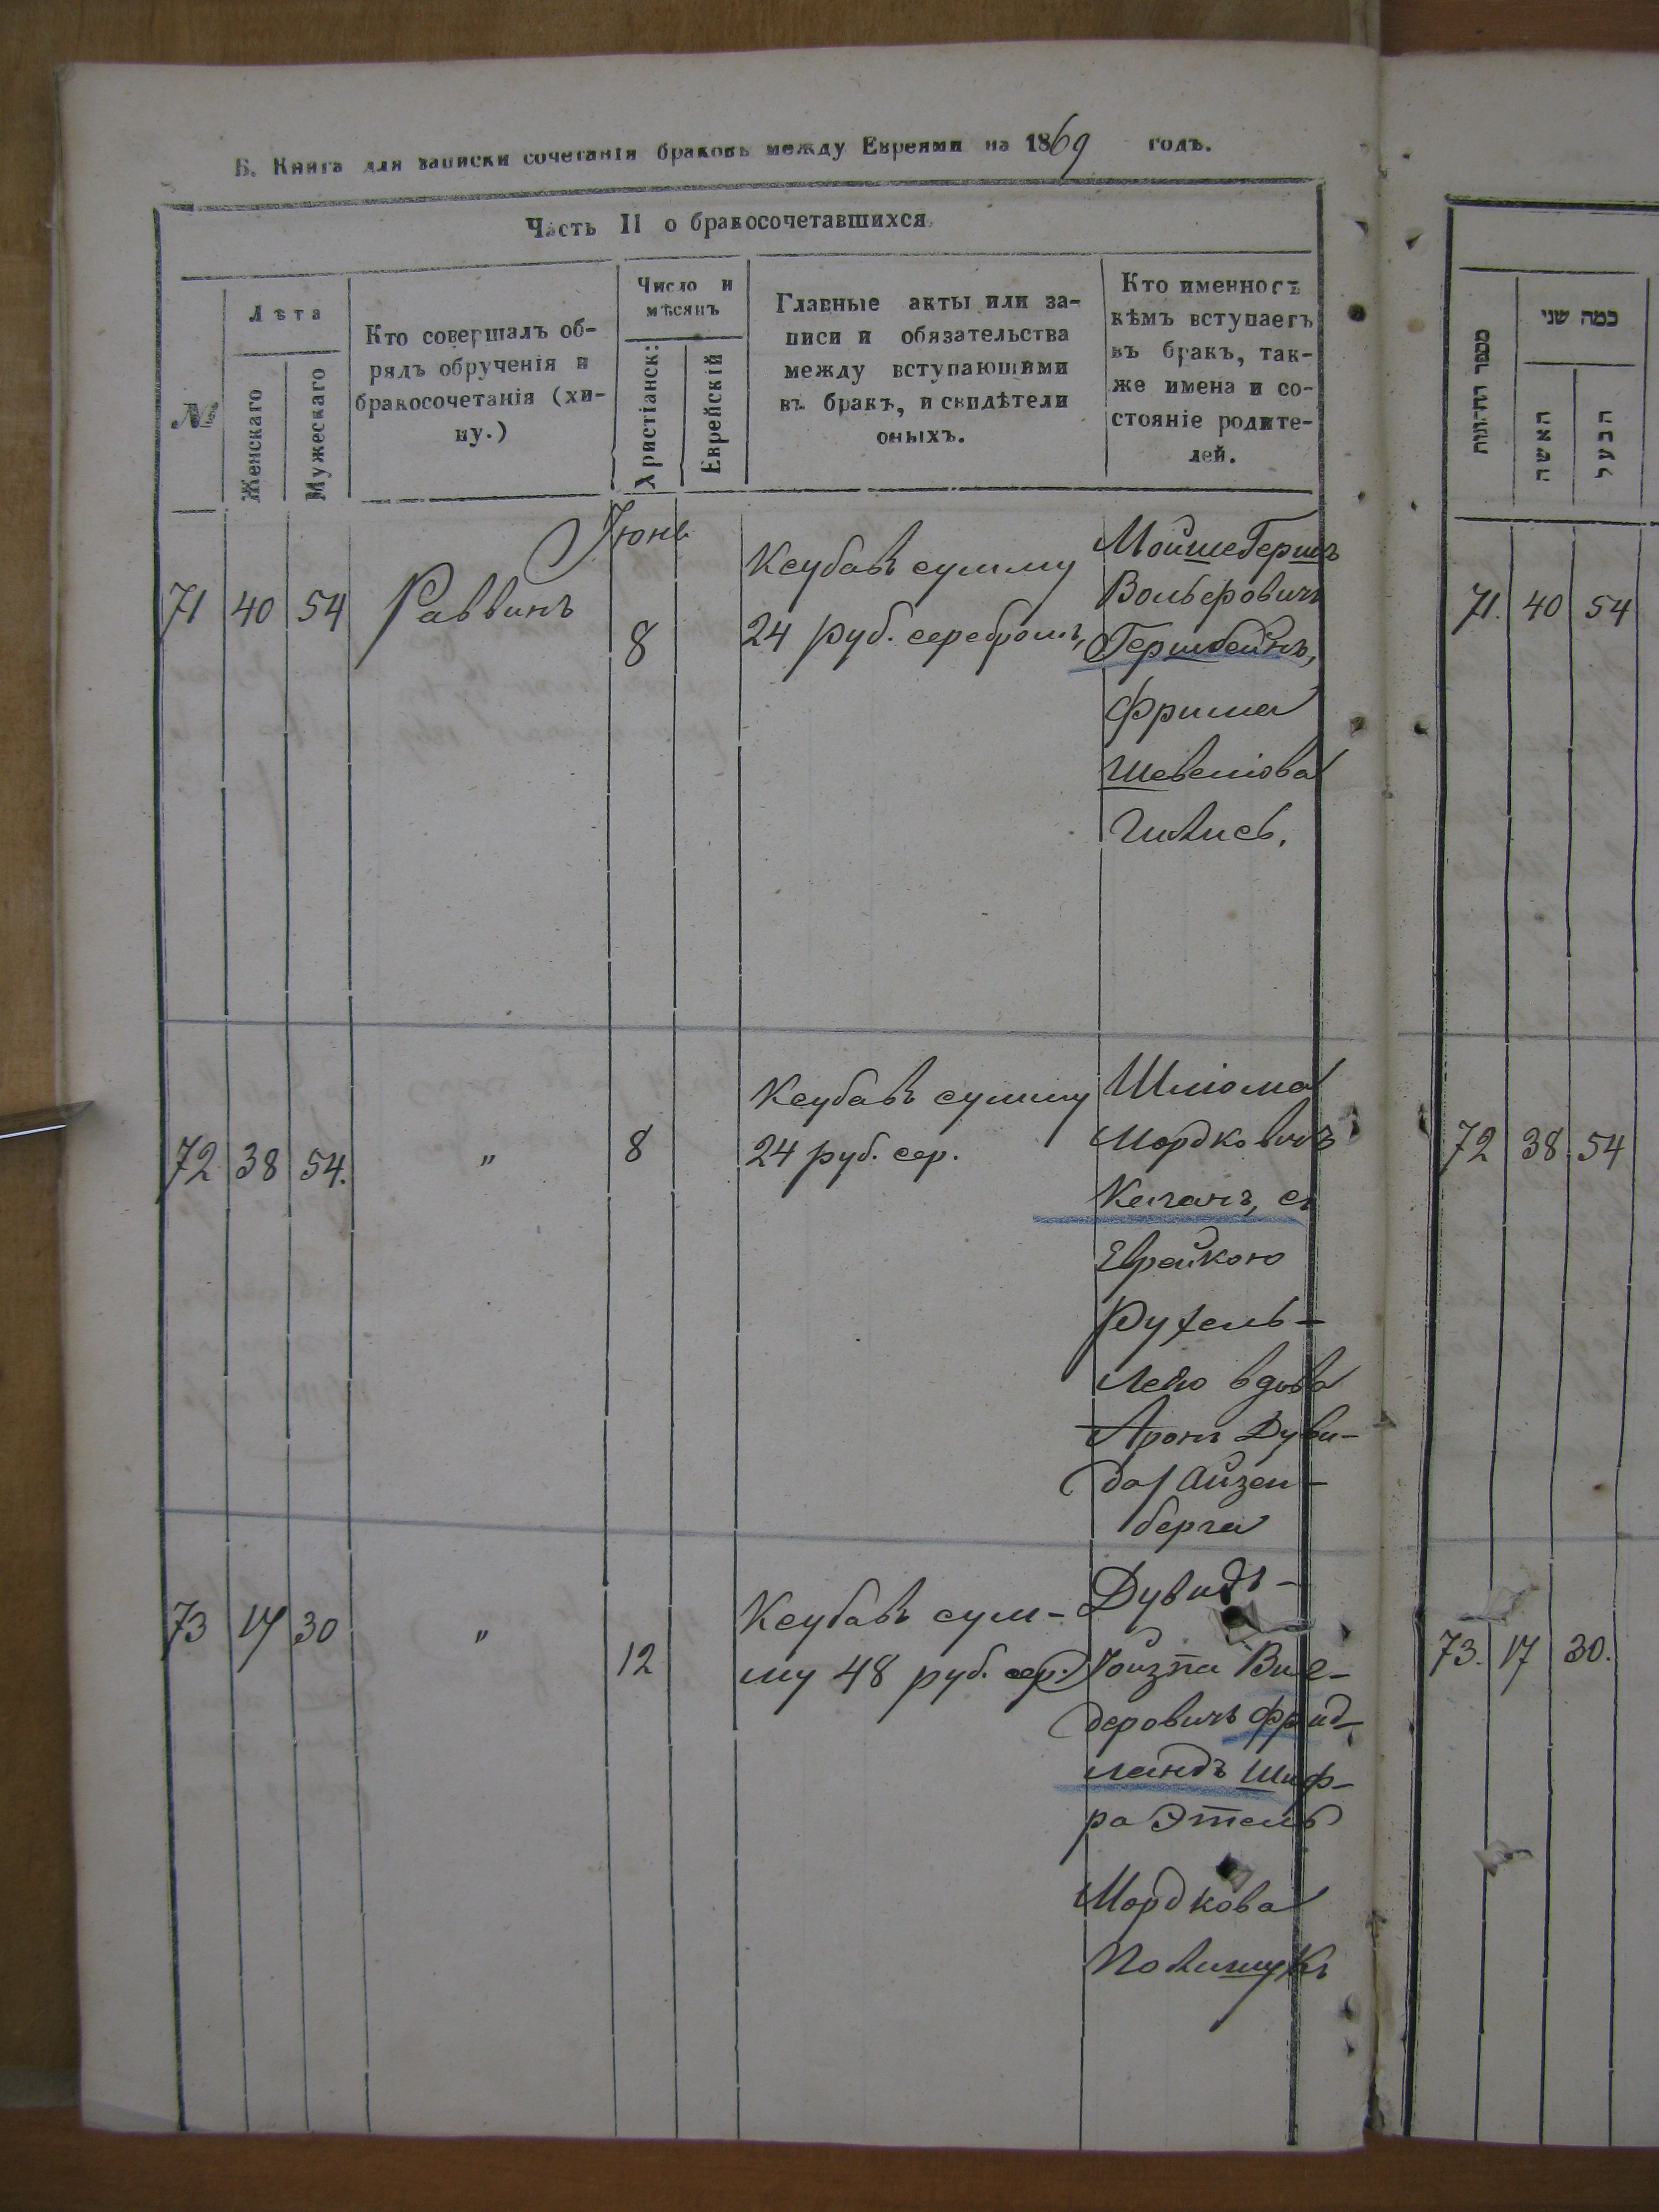 Б. Книга для записки сочетанія браковъ между Евреями на 1869 годъ.
Часть II о бракосочетавшихся.
№
Лѣта
Женскаго
Мужескаго
Кто совершалъ об-
рядъ обрученія и
бракосочетанія (хи-
пу.)
Число и
мѣсяцъ
Христіанск:
Еврейскій
Главные акты или за-
писи и обязательства
между вступающими
въ бракъ, и свидѣтели
оныхъ.
Кто именно съ
кѣмъ вступаетъ
въ бракъ, так-
же имена и со-
стояніе родите-
лей.
כמה שני
מספר החתונות
האשה
הבעל
Іюнь
71 40 54 Раввинъ 8
Ксубавъ сумму
24 руб. серебромъ,
Мойше Гершъ
Вольфовичъ
Гершбейнъ,
Фрима
Шевелiова
71. 40 54
72 38 54. " 8
Ксубавъ сумму
24 руб. сер.
Шліома
Мордковичъ
Каганъ, съ
Еврейкою
Рухель-
Лею вдова
Аронъ Дуви-
да Айзен-
берга
72 38. 54
73 17 30 " 12
Ксубавъ сум-
му 48 руб. сер.
Дувидъ-
деровичъ Фрид-
ландъ Шиф-
ра Этель
Мордкова
Полищукъ
73. 17 30.